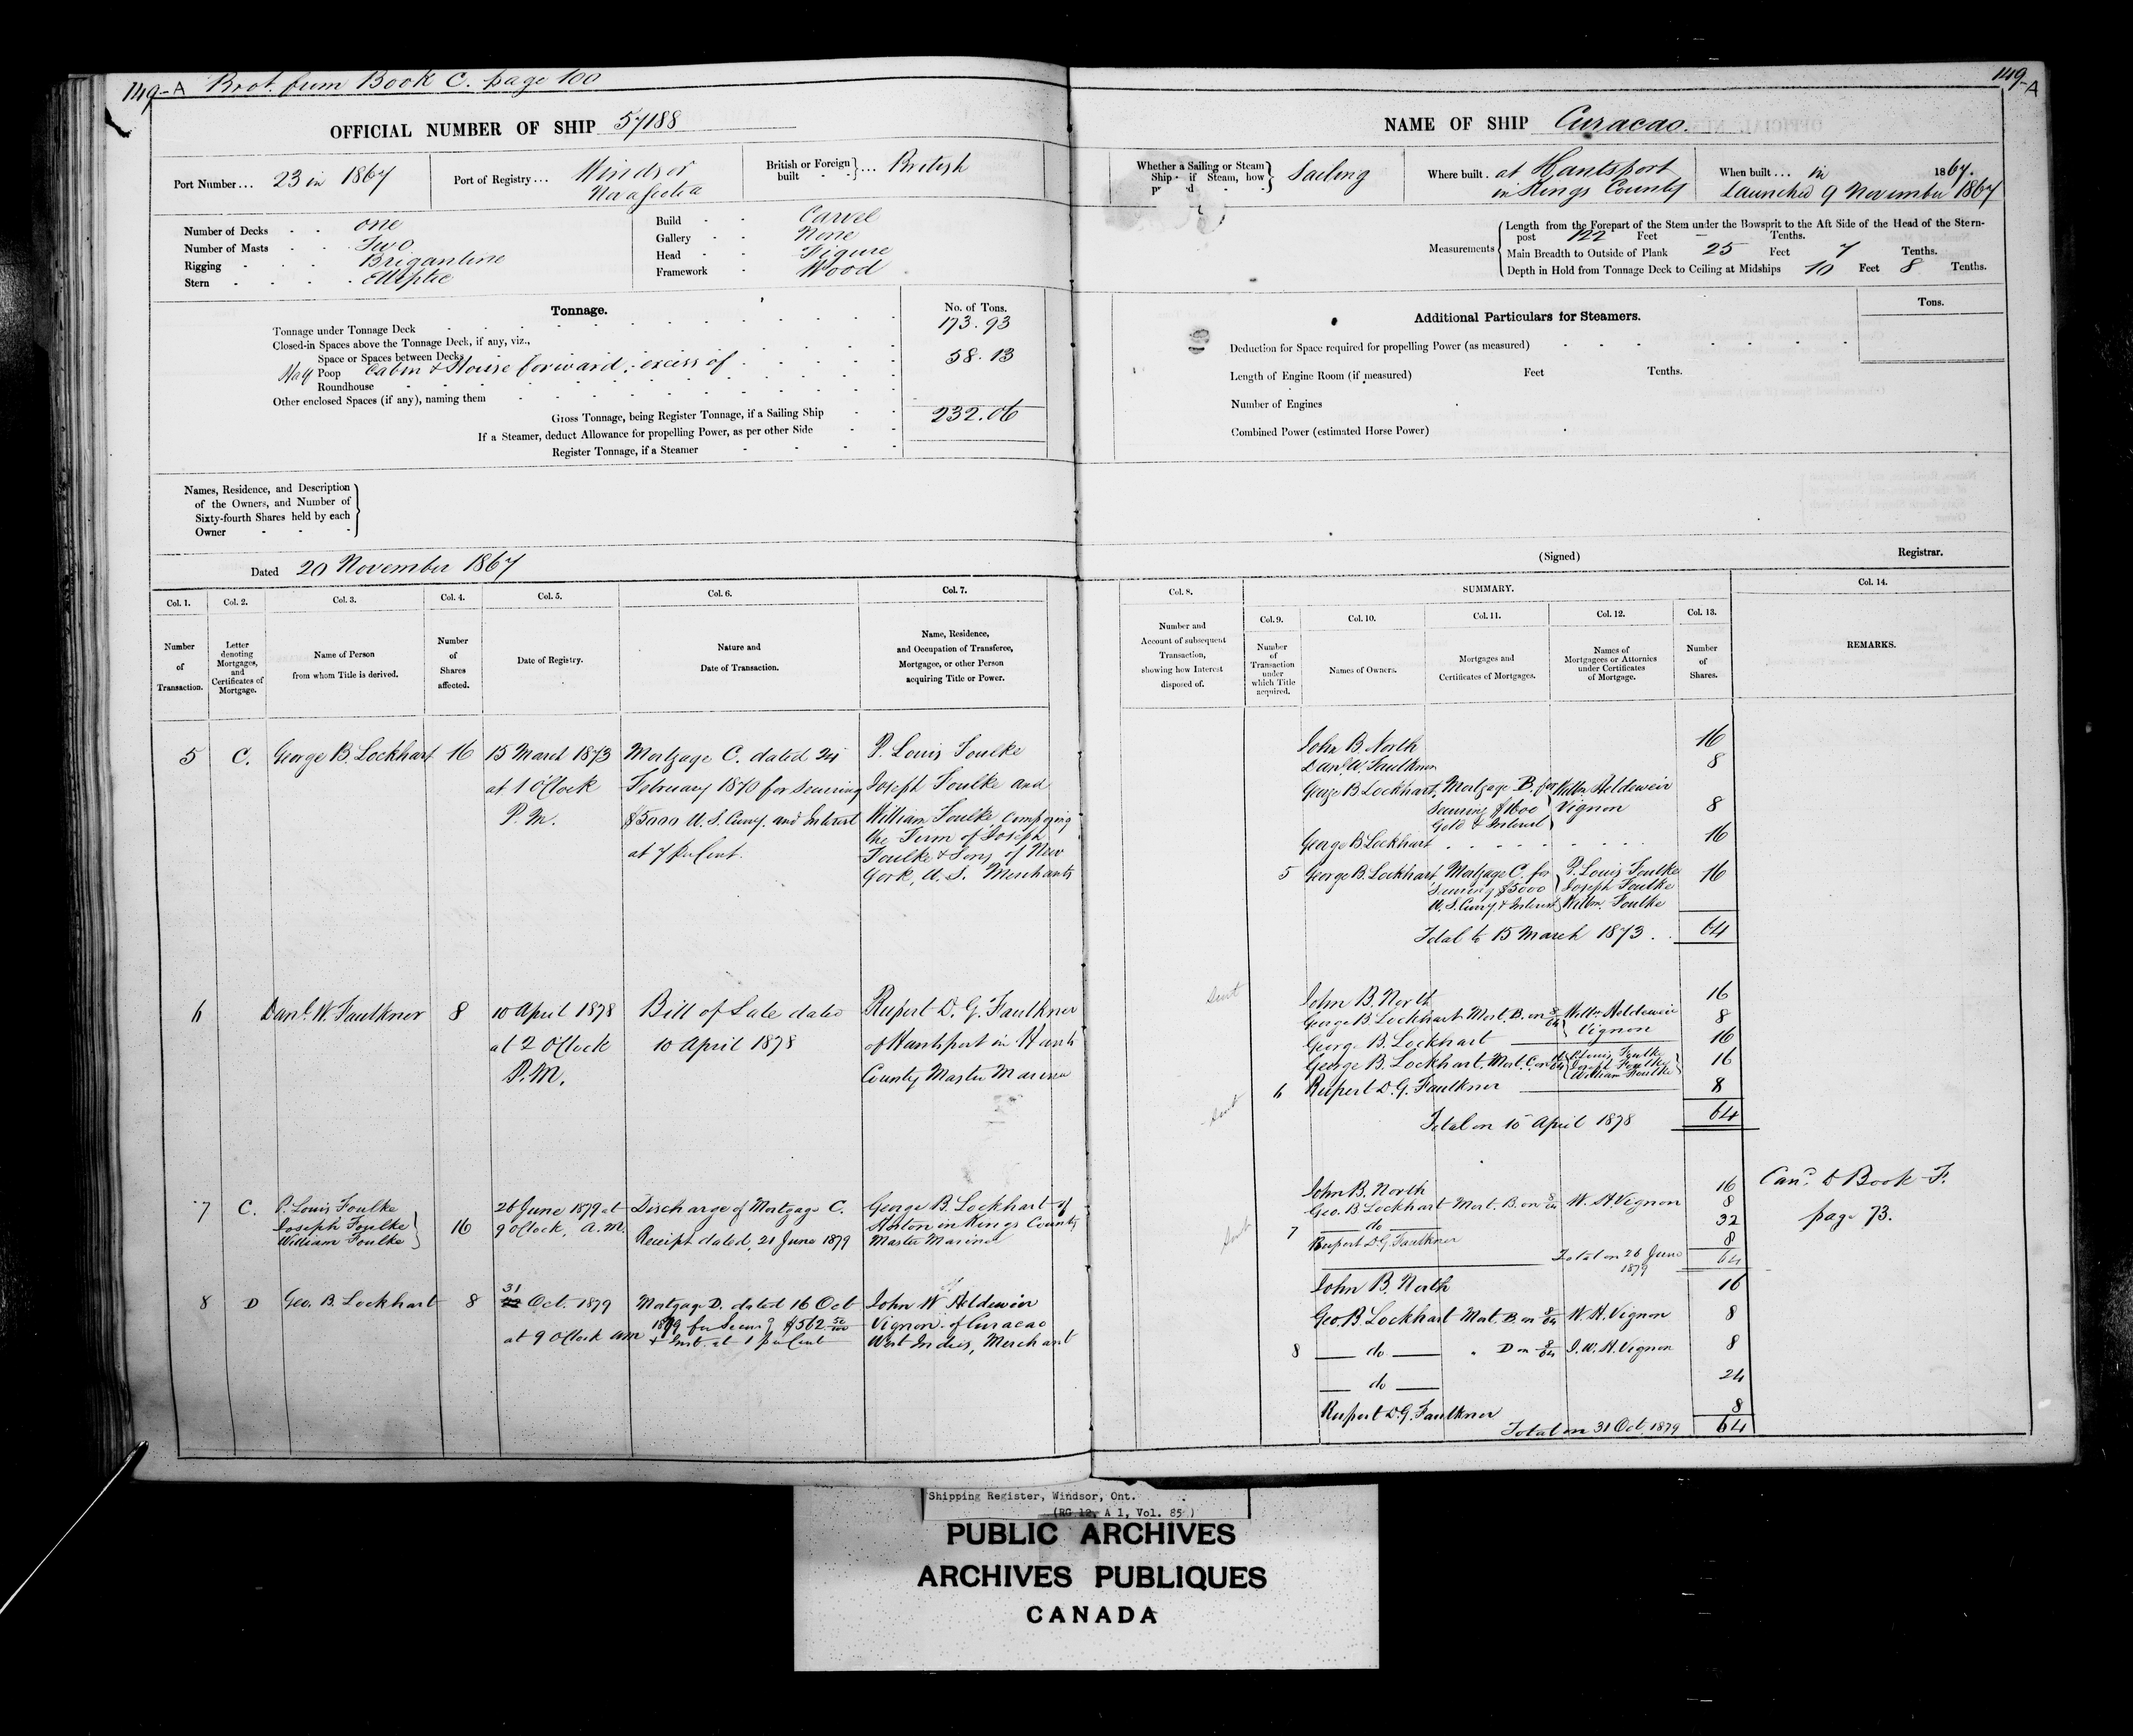 149-A Brot. from Book C. page 100
149-A
OFFICIAL NUMBER OF SHIP 57188
NAME OF SHIP Curacao.
Port Number... 23 in 1867
Port of Registry... Windsor
Nova Scotia
British or Foreign built } ... British
Whether a Sailing or Steam Ship if Steam, how } Sailing
Where built . at Hantsport
in Kings County
When built ... in 1867.
Launched 9 November 1867
Number of Decks - - one
Number of Masts - - Two
Rigging - - - Brigantine
Stern - - - Elliptic
Build - - Carvel
Gallery - - None
Head - - Figure
Framework - Wood
Measurements { Length from the Forepart of the Stem under the Bowsprit to the Aft Side of the Head of the Stern-
post 122 Feet — Tenths.
Main Breadth to Outside of Plank 25 Feet 7 Tenths.
Depth in Hold from Tonnage Deck to Ceiling at Midships 10 Feet 8 Tenths.
Tonnage. No. of Tons.
Tonnage under Tonnage Deck 173.93
Closed-in Spaces above the Tonnage Deck, if any, viz.,
Space or Spaces between Decks
Poop Cabin & House forward, excess of 58.13
Roundhouse
Other enclosed Spaces (if any), naming them
Gross Tonnage, being Register Tonnage, if a Sailing Ship 232.06
If a Steamer, deduct Allowance for propelling Power, as per other Side
Register Tonnage, if a Steamer
Additional Particulars for Steamers. Tons.
Deduction for Space required for propelling Power (as measured)
Length of Engine Room (if measured) Feet Tenths.
Number of Engines
Combined Power (estimated Horse Power)
Names, Residence, and Description
of the Owners, and Number of
Sixty-fourth Shares held by each
Owner
Dated 20 November 1867
(Signed) Registrar.
Col. 1. Col. 2. Col. 3. Col. 4. Col. 5. Col. 6. Col. 7.
Number of Transaction.
Letter denoting Mortgages, and Certificates of Mortgage.
Name of Person from whom Title is derived.
Number of Shares affected.
Date of Registry.
Nature and Date of Transaction.
Name, Residence, and Occupation of Transferee, Mortgagee, or other Person acquiring Title or Power.
Col. 8. SUMMARY. Col. 14.
Col. 9. Col. 10. Col. 11. Col. 12. Col. 13.
Number and Account of subsequent Transaction, showing how Interest disposed of.
Number of Transaction under which Title acquired.
Names of Owners.
Mortgages and Certificates of Mortgages.
Names of Mortgagees or Attornies under Certificates of Mortgage.
Number of Shares.
REMARKS.
5 C. George B. Lockhart 16 15 March 1873 Mortgage C. dated 24 P. Louis Foulke
at 1 O'Clock February 1870 for securing Joseph Foulke and
P.M. $5000 U.S. Curry. and Interest William Foulke composing
at 7 per Cent. the Firm of Joseph
Foulke & Sons of New
York, U.S. Merchants
John B. North 16
Danl. W. Faulkner 8
George B Lockhart. Mortgage B. for Willm Heldewier
securing $1600 } Vignon 8
Gold & Interest
George B Lockhart 16
5 George B. Lockhart Mortgage C. for P. Louis Foulke 16
Securing $5000 } Joseph Foulke
U.S. Curry. & Interest Willm. Foulke
Total to 15 March 1873 . 64
6 Danl. W. Faulkner 8 10 April 1878 Bill of Sale dated Rupert D. G. Faulkner
at 2 O'Clock 10 April 1878 of Hantsport in Hants
P.M. County Master Mariner
John B. North 16
George B. Lockhart Mort. B. on 8/64 Willm Heldewier Vignon 8
George B. Lockhart 16
George B. Lockhart. Mort. C. on 16/64 { P. Louis Foulke Joseph Foulke William Foulke } 16
6 Rupert D. G. Faulkner 8
Total on 10 April 1878 64
7 C. P. Louis Foulke 26 June 1879 at Discharge of Mortgage C. George B. Lockhart of
Joseph Foulke } 16 9 O'Clock, A.M. Receipt dated, 21 June 1879 in Kings County
William Foulke Master Mariner
John B. North 16
Geo. B Lockhart Mort. B. on 8/64 W. H. Vignon 8
7 — do — 32
Rupert D. G. Faulkner 8
Total on 26 June 1879 64
Card. to Book F.
page 73.
8 D Geo. B. Lockhart 8 31 Oct. 1879 Mortgage D. dated 16 Oct John W Heldewier
at 9 O'Clock am 1879 for Securg $562 50/100 Vignon of Curacao
& Inst. at 1 per Cent West Indies, Merchant
John B. North 16
Geo. B. Lockhart Mort. B. on 8/64 W. H. Vignon 8
8 — do — " D on 8/64 J. W. H. Vignon 8
— do — 24
Rupert D. G. Faulkner 8
Total on 31 Oct. 1879 64
Shipping Register, Windsor, Ont.
(RG 12, A 1, Vol. 85)
PUBLIC ARCHIVES
ARCHIVES PUBLIQUES
CANADA